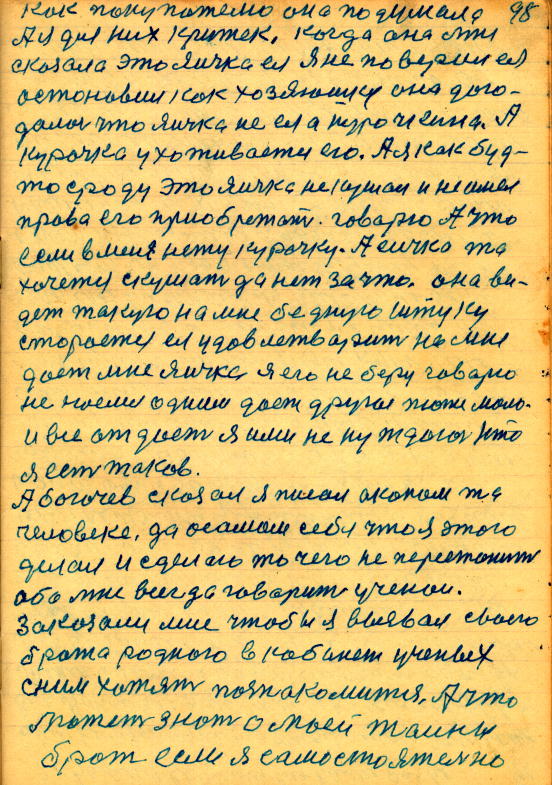 98
Кок покупотелю она подумала
А я для них критек. Когда она мне
сказала это яичка ел я не поверил ея
остоновил как хозяюшку она дога-
далоси что яичка не ела курочкина. А
курочка ухоживаети его. А я как буд-
то сроду это яичка не кушал и не имел
права его приобретати. говарю А что
если в меня нету курочку. А еичка та
хочети скушат да нет за что. она ви-
дет такую на мне бедную штуку
стороети ея удовлетварит на мне
дает мне яичка я его не беру говарю
не наеми одним дает другоя тоже мало.
и все отдает я ими не нуждоюс что
я ест таков.
А богочев сказал я писал окопом та
человеке, да осамом себя что я этого
делал и сделаю то чего не перестонит
оба мне всегда говарит ученои.
Заказали мне чтобы я вызвал своего
брата родного в кабинет ученых
сним хотят познакомится, А что
может знат о моей таины
брат если я самостоятелно